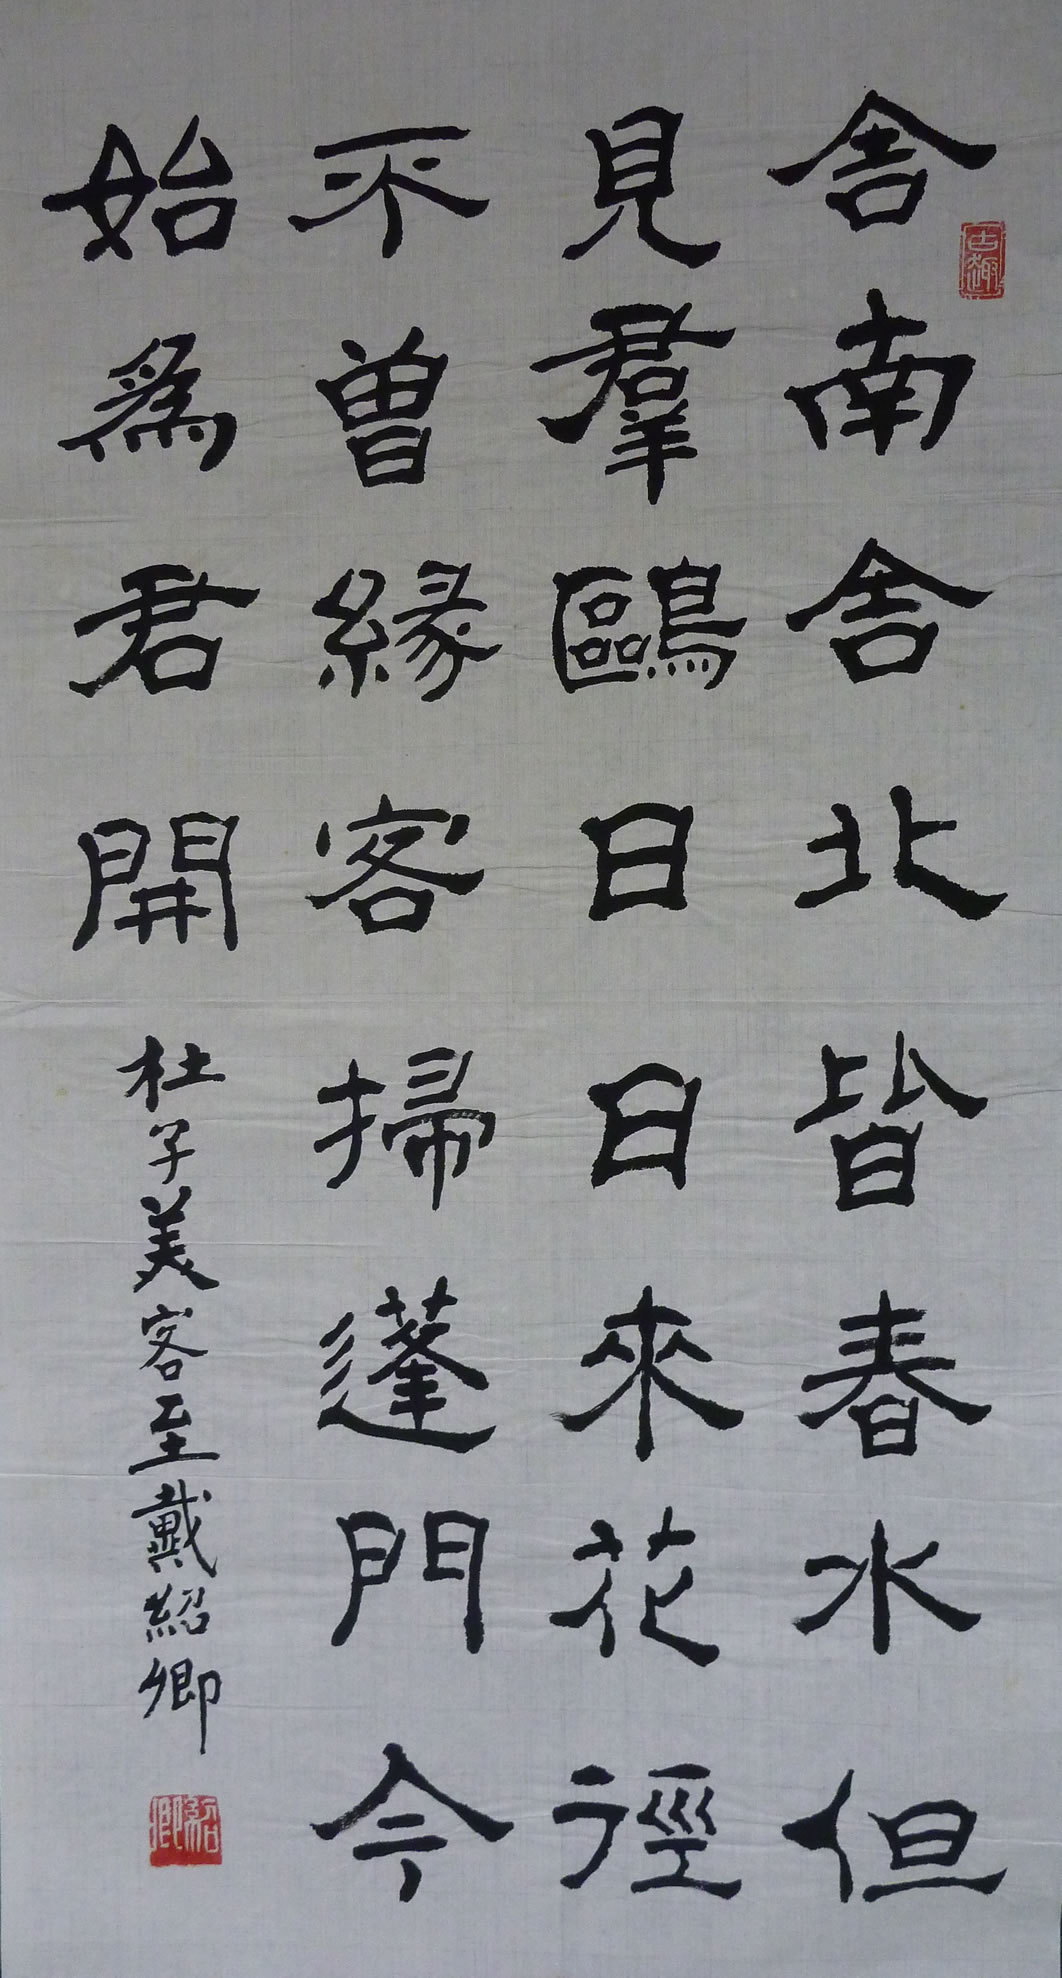 舍南舍北皆春水但
見羣鷗日日來花徑
不曾緣客掃蓬門今
始爲君開
杜子美客至戴紹卿
古趣
紹卿